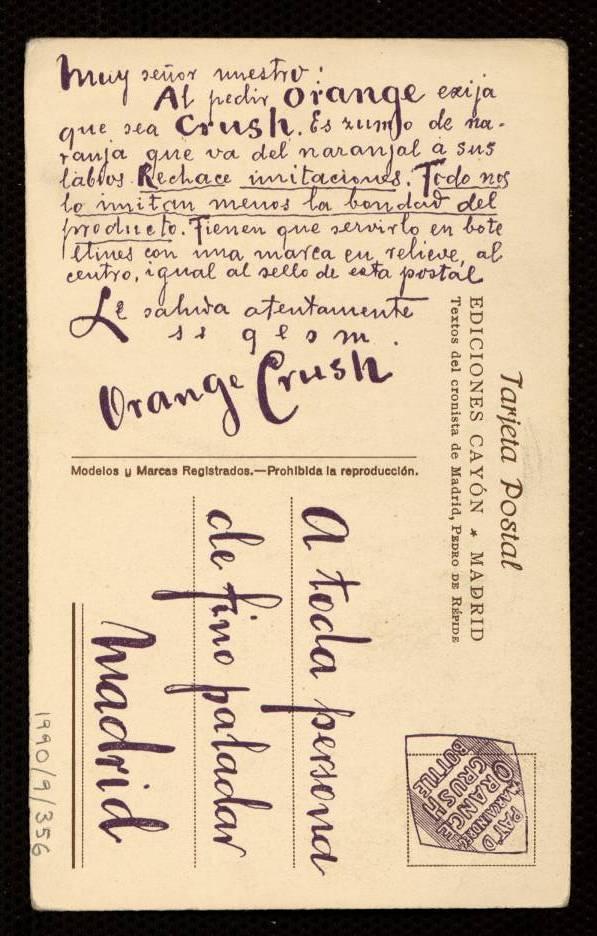 Muy señor nuestro:
Al pedir Orange exija
que sea Crush. Es zumo de na-
ranja que va del naranjal a sus
labios. Rechace imitaciones. Todo nos
lo imitan menos la bondad del
producto. Tienen que servirlo en bote
llines con una marca en relieve, al
centro, igual al sello de esta postal
Le saluda atentamente
s s q e s m.
Orange Crush
Modelos y Marcas Registrados.—Prohibida la reproducción.
Tarjeta Postal
EDICIONES CAYÓN * MADRID
Textos del cronista de Madrid, PEDRO DE RÉPIDE
A toda persona
de fino paladar
Madrid
PAT'D
ORANGE
CRUSH
BOTTLE
1990/9/356